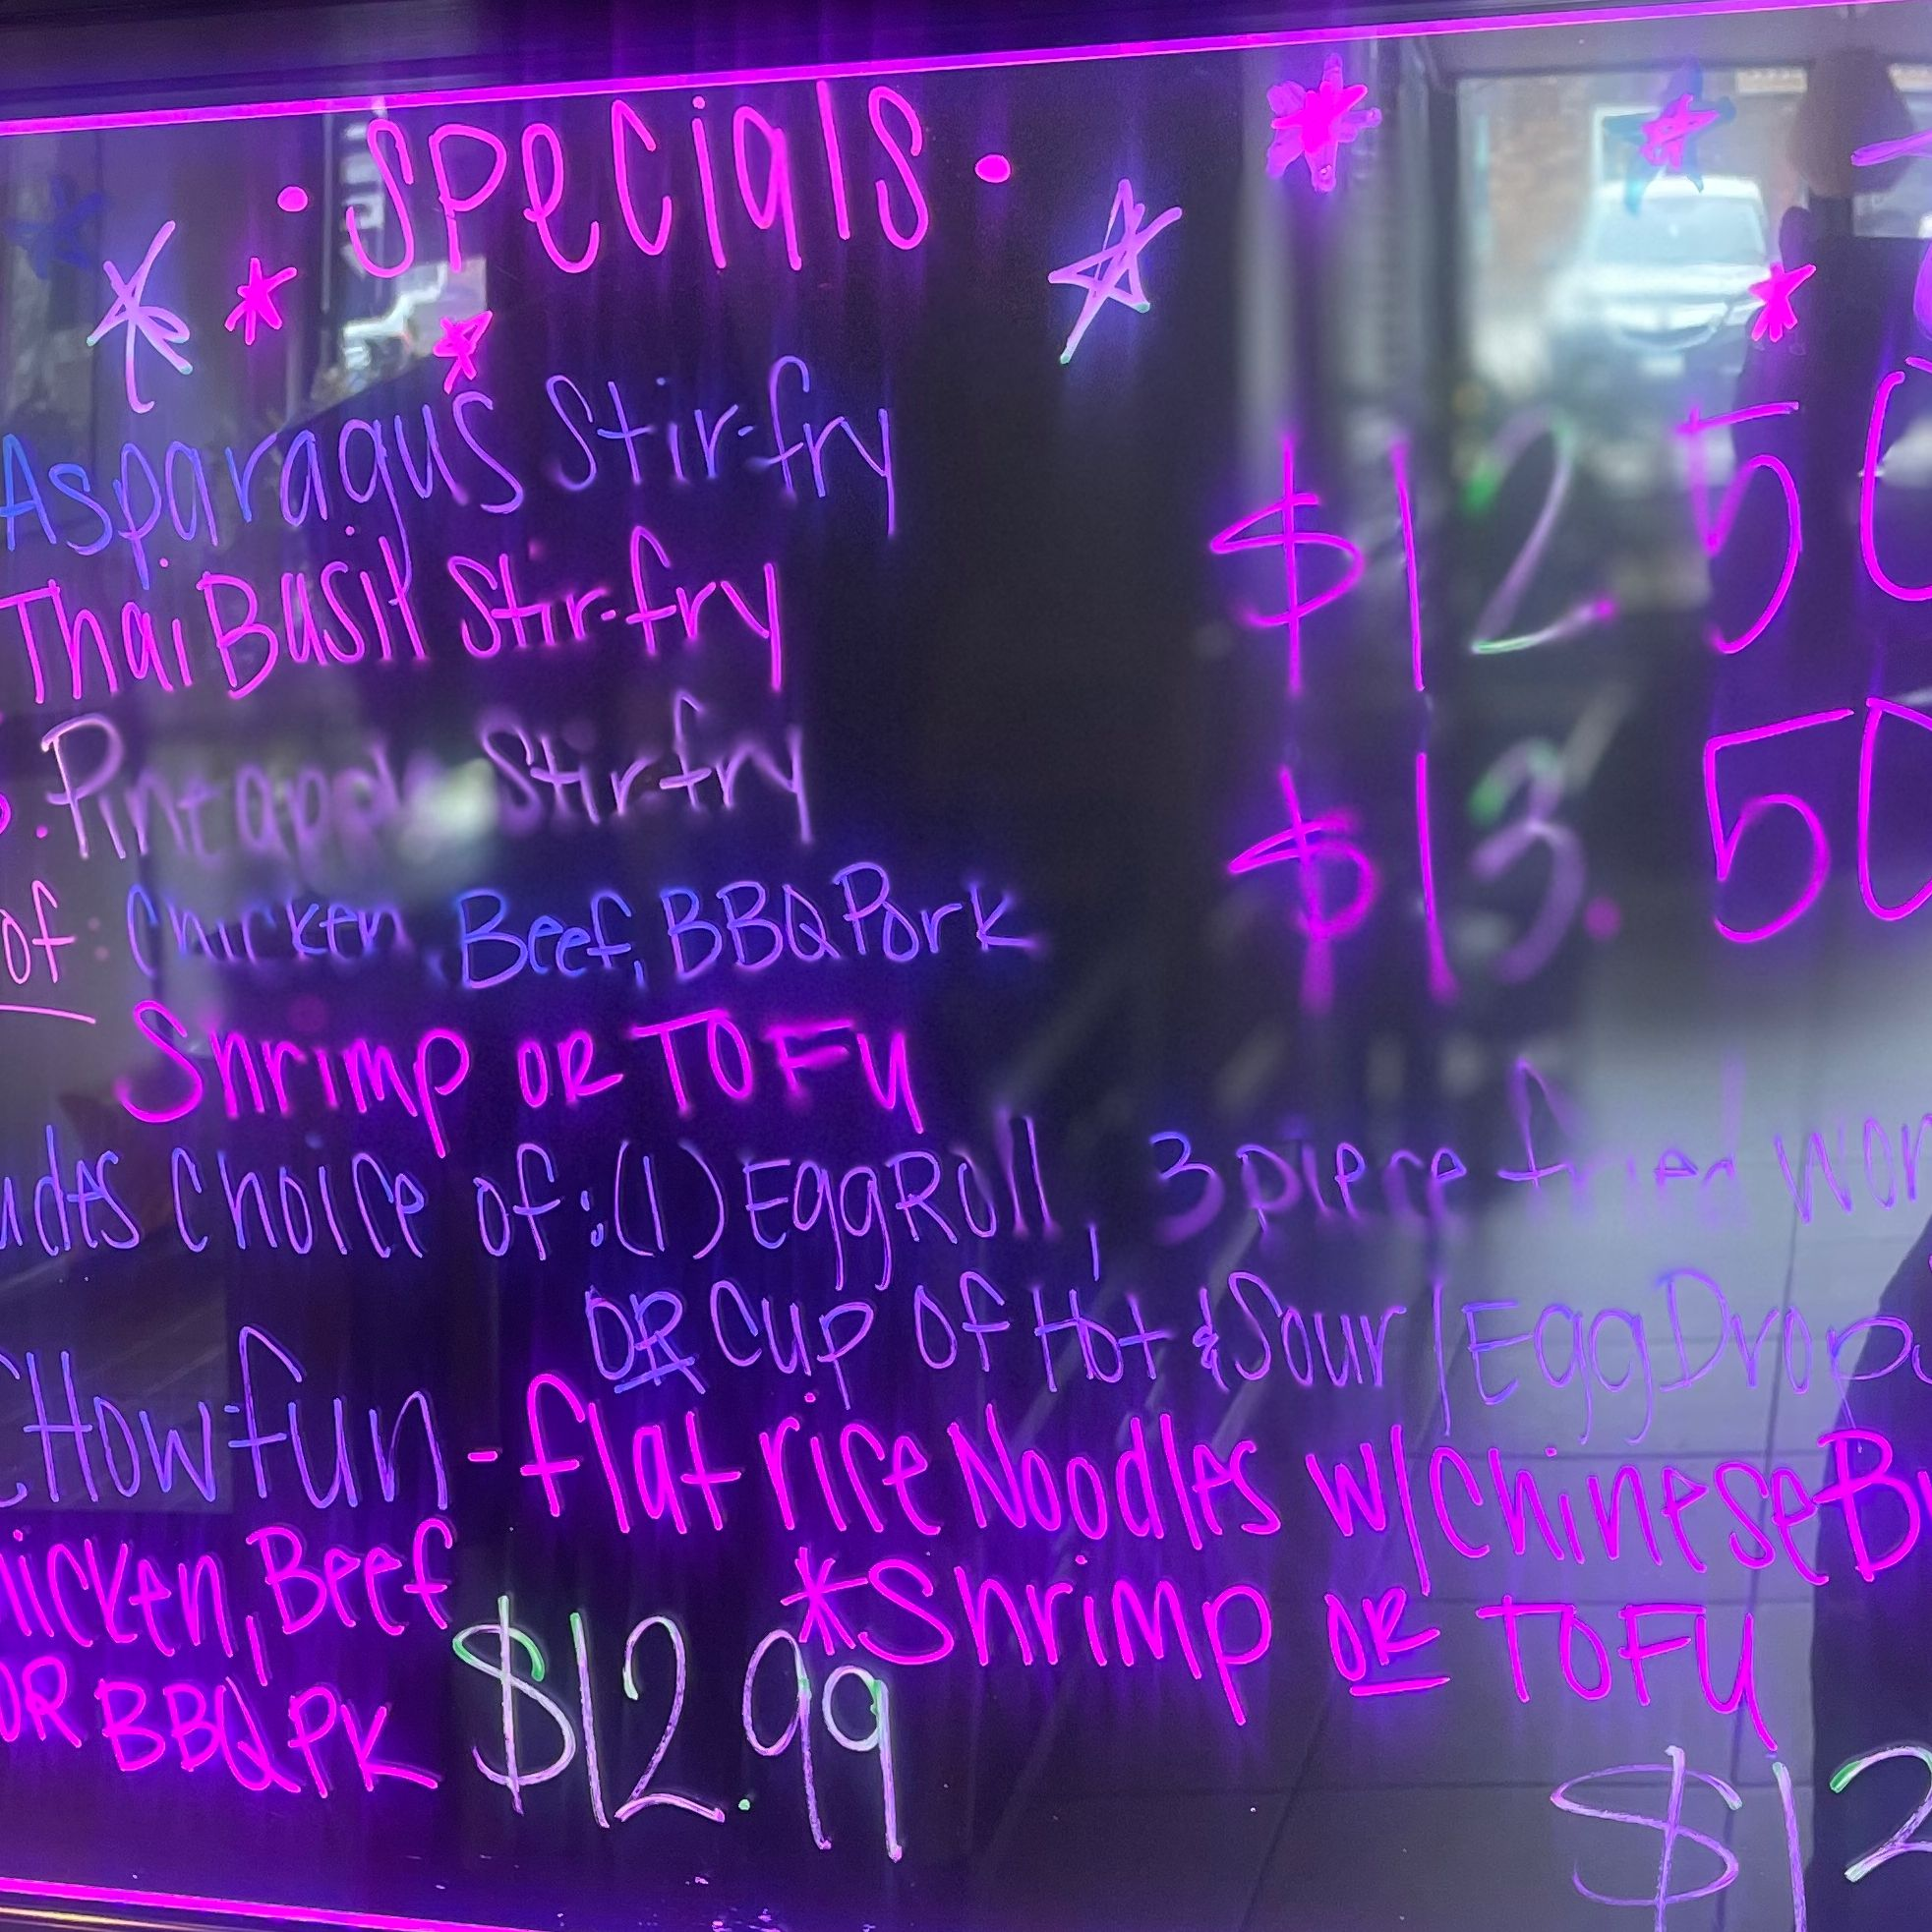 • Specials •
Asparagus Stir-fry
$12.50
Thai Basil Stir-fry
Pineapple Stir-fry
of: Chicken, Beef, BBQ Pork
$13.50
Shrimp OR TOFU
Choice of: (1) Egg Roll, 3 piece fried
OR Cup of Hot & Sour / Egg Drop
CHow fun - flat rice Noodles w/ Chinese
Chicken, Beef
*Shrimp OR TOFU
OR BBQ PK $12.99
$12